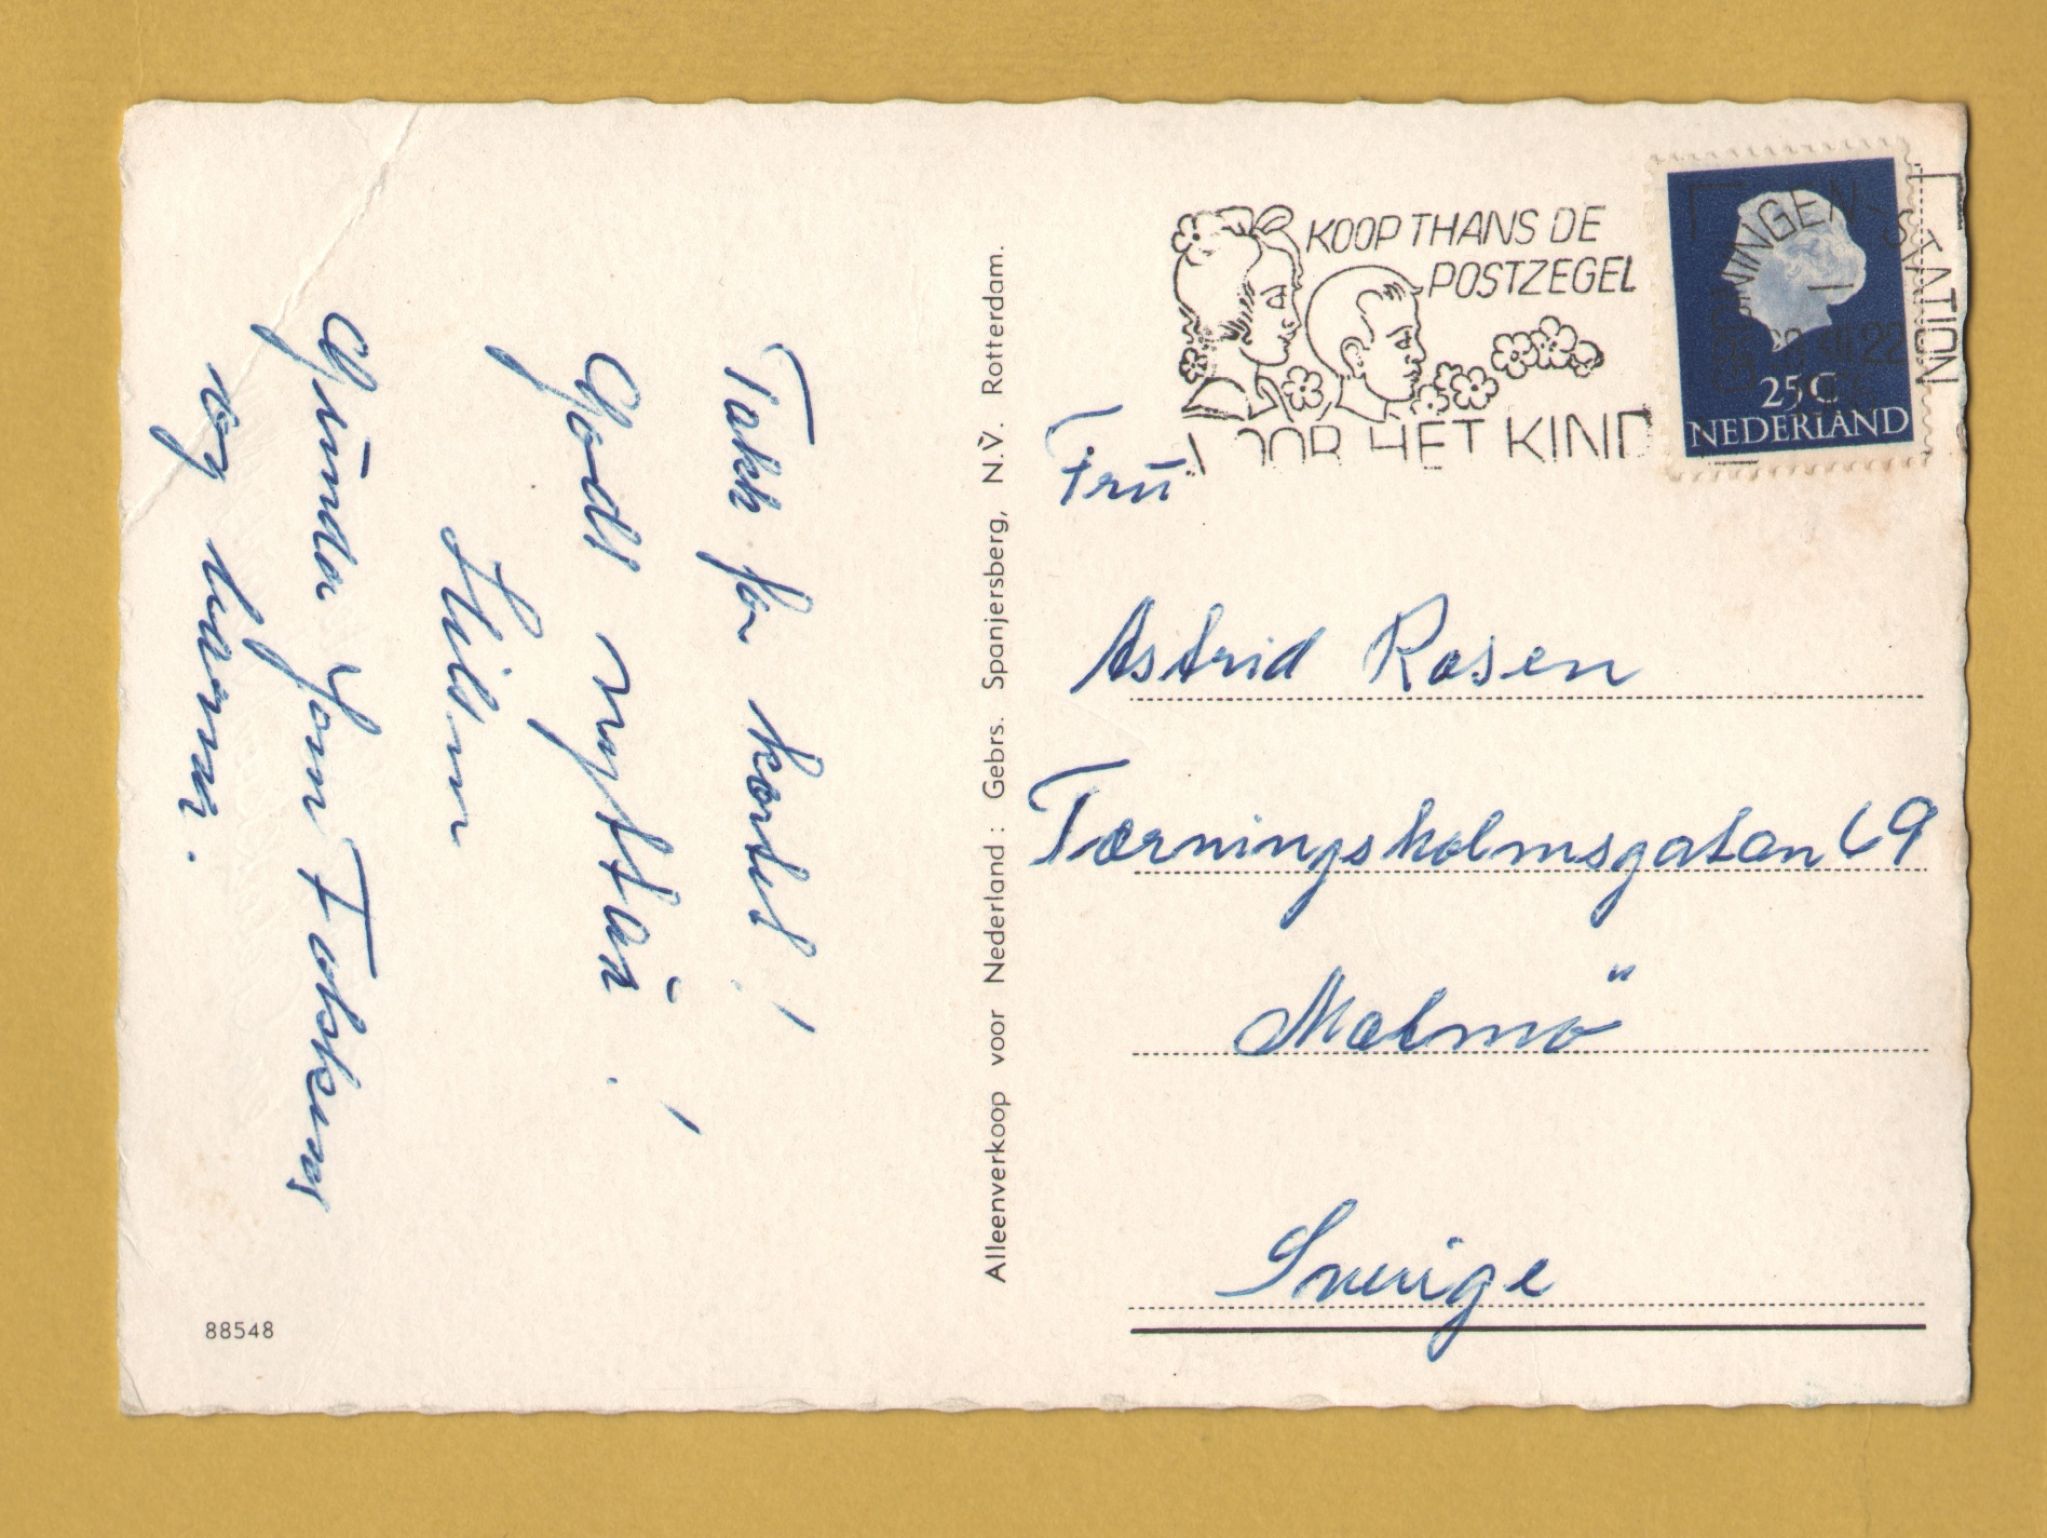 Takk for kortet!
Godt nyttår!
Hilsn
Gunda Jon Torkem
og barna.
88548
Alleenverkoop voor Nederland: Gebrs. Spanjersberg, N.V. Rotterdam.
KOOP THANS DE
POSTZEGEL
VOOR HET KIND
NINGEN-STATION
22
25 C
NEDERLAND
Frü
Astrid Rosen
Tærningsholmsgatan 69
Malmö
Sverige